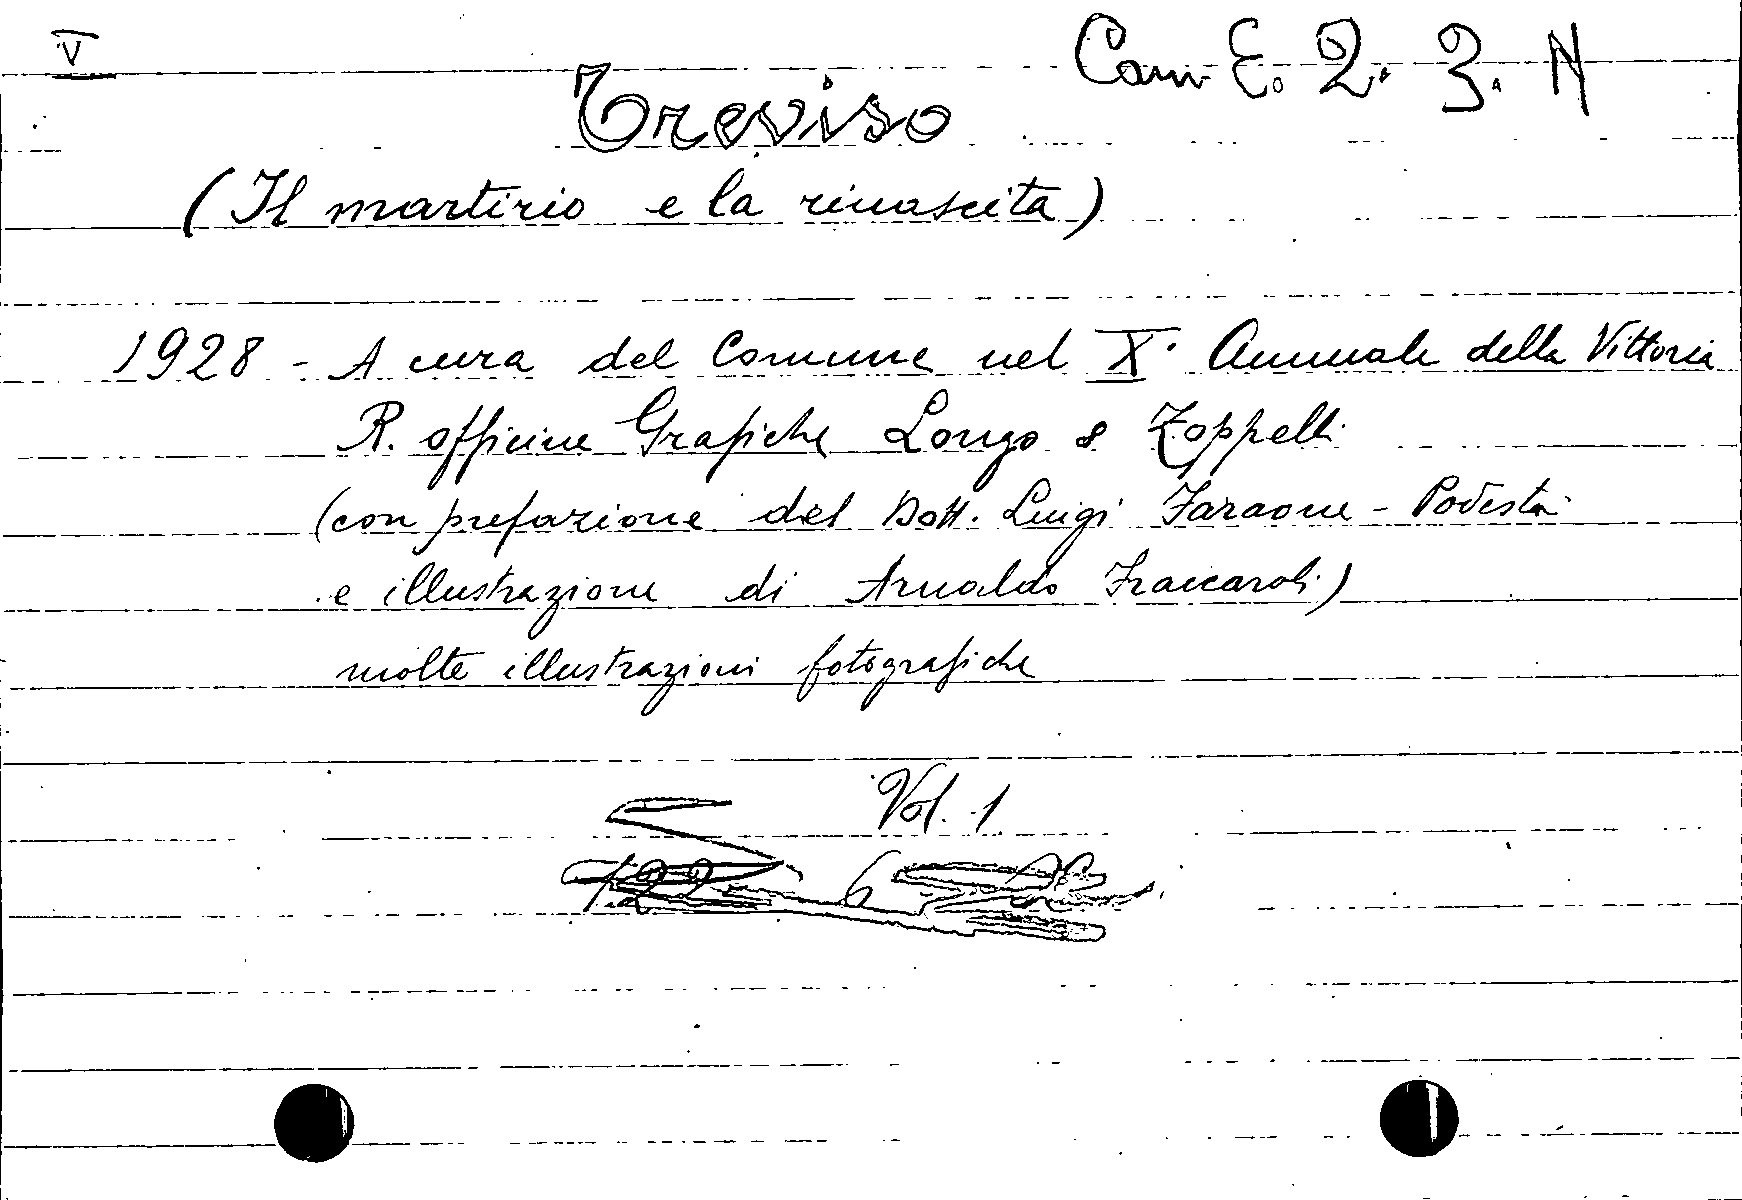 V
Cam E. 2. 3. N
Treviso
(Il martirio e la rinascita)
1928 - A cura del Comune nel X° Annuale della Vittoria
R. officine Grafiche Longo & Zoppelli
(con prefazione del Dott. Luigi Faraone - Podestà
e illustrazione di Arnaldo Fraccaroli)
molte illustrazioni fotografiche
Vol. 1